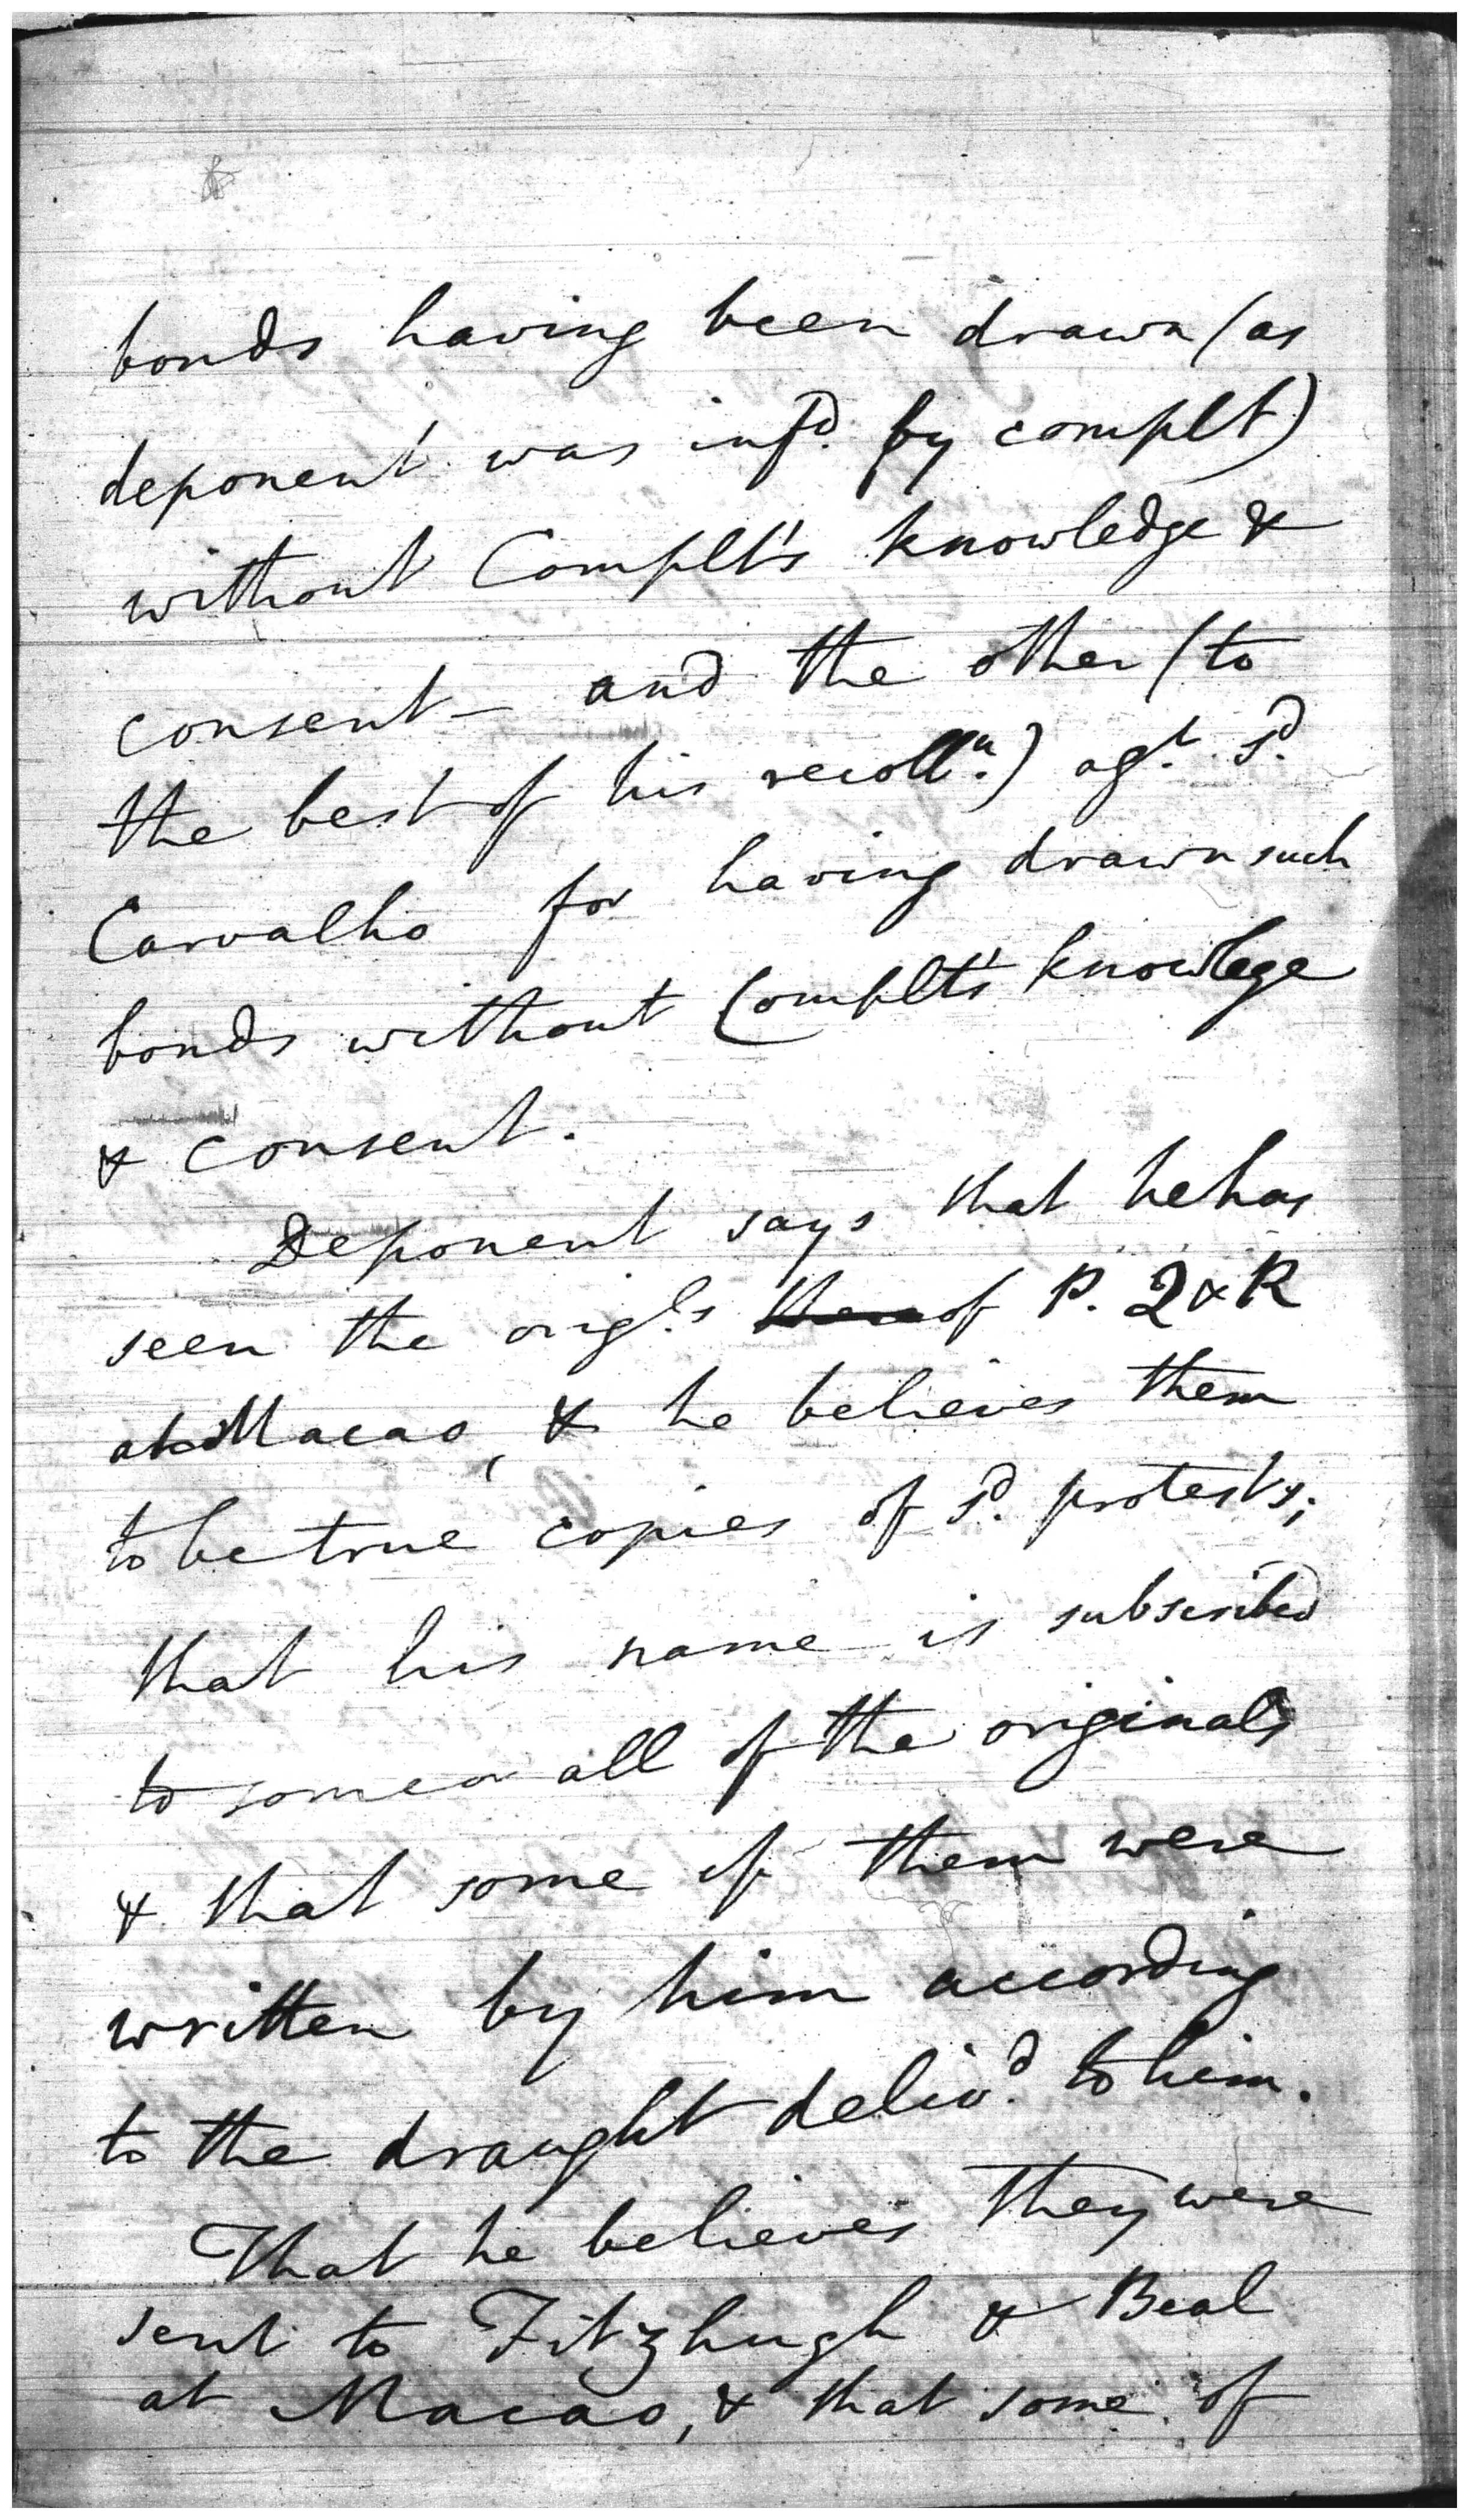 bonds having been drawn (as
deponent was infd. by complt)
without Complt's knowledge &
consent – and the other (to
the best of his recolln.) agt. sd.
Carvalho for having drawn such
bonds without Complt's knowlege
& consent.
Deponent says that he has
seen the origls. of P. Q & R
at Macao, & he believes them
to be true copies of sd. protests;
that his name is subscribed
to some or all of the originals
& that some of them were
written by him according
to the draught delivd. to him.
That he believes they were
sent to Fitzhugh & Beal
at Macao, & that some of